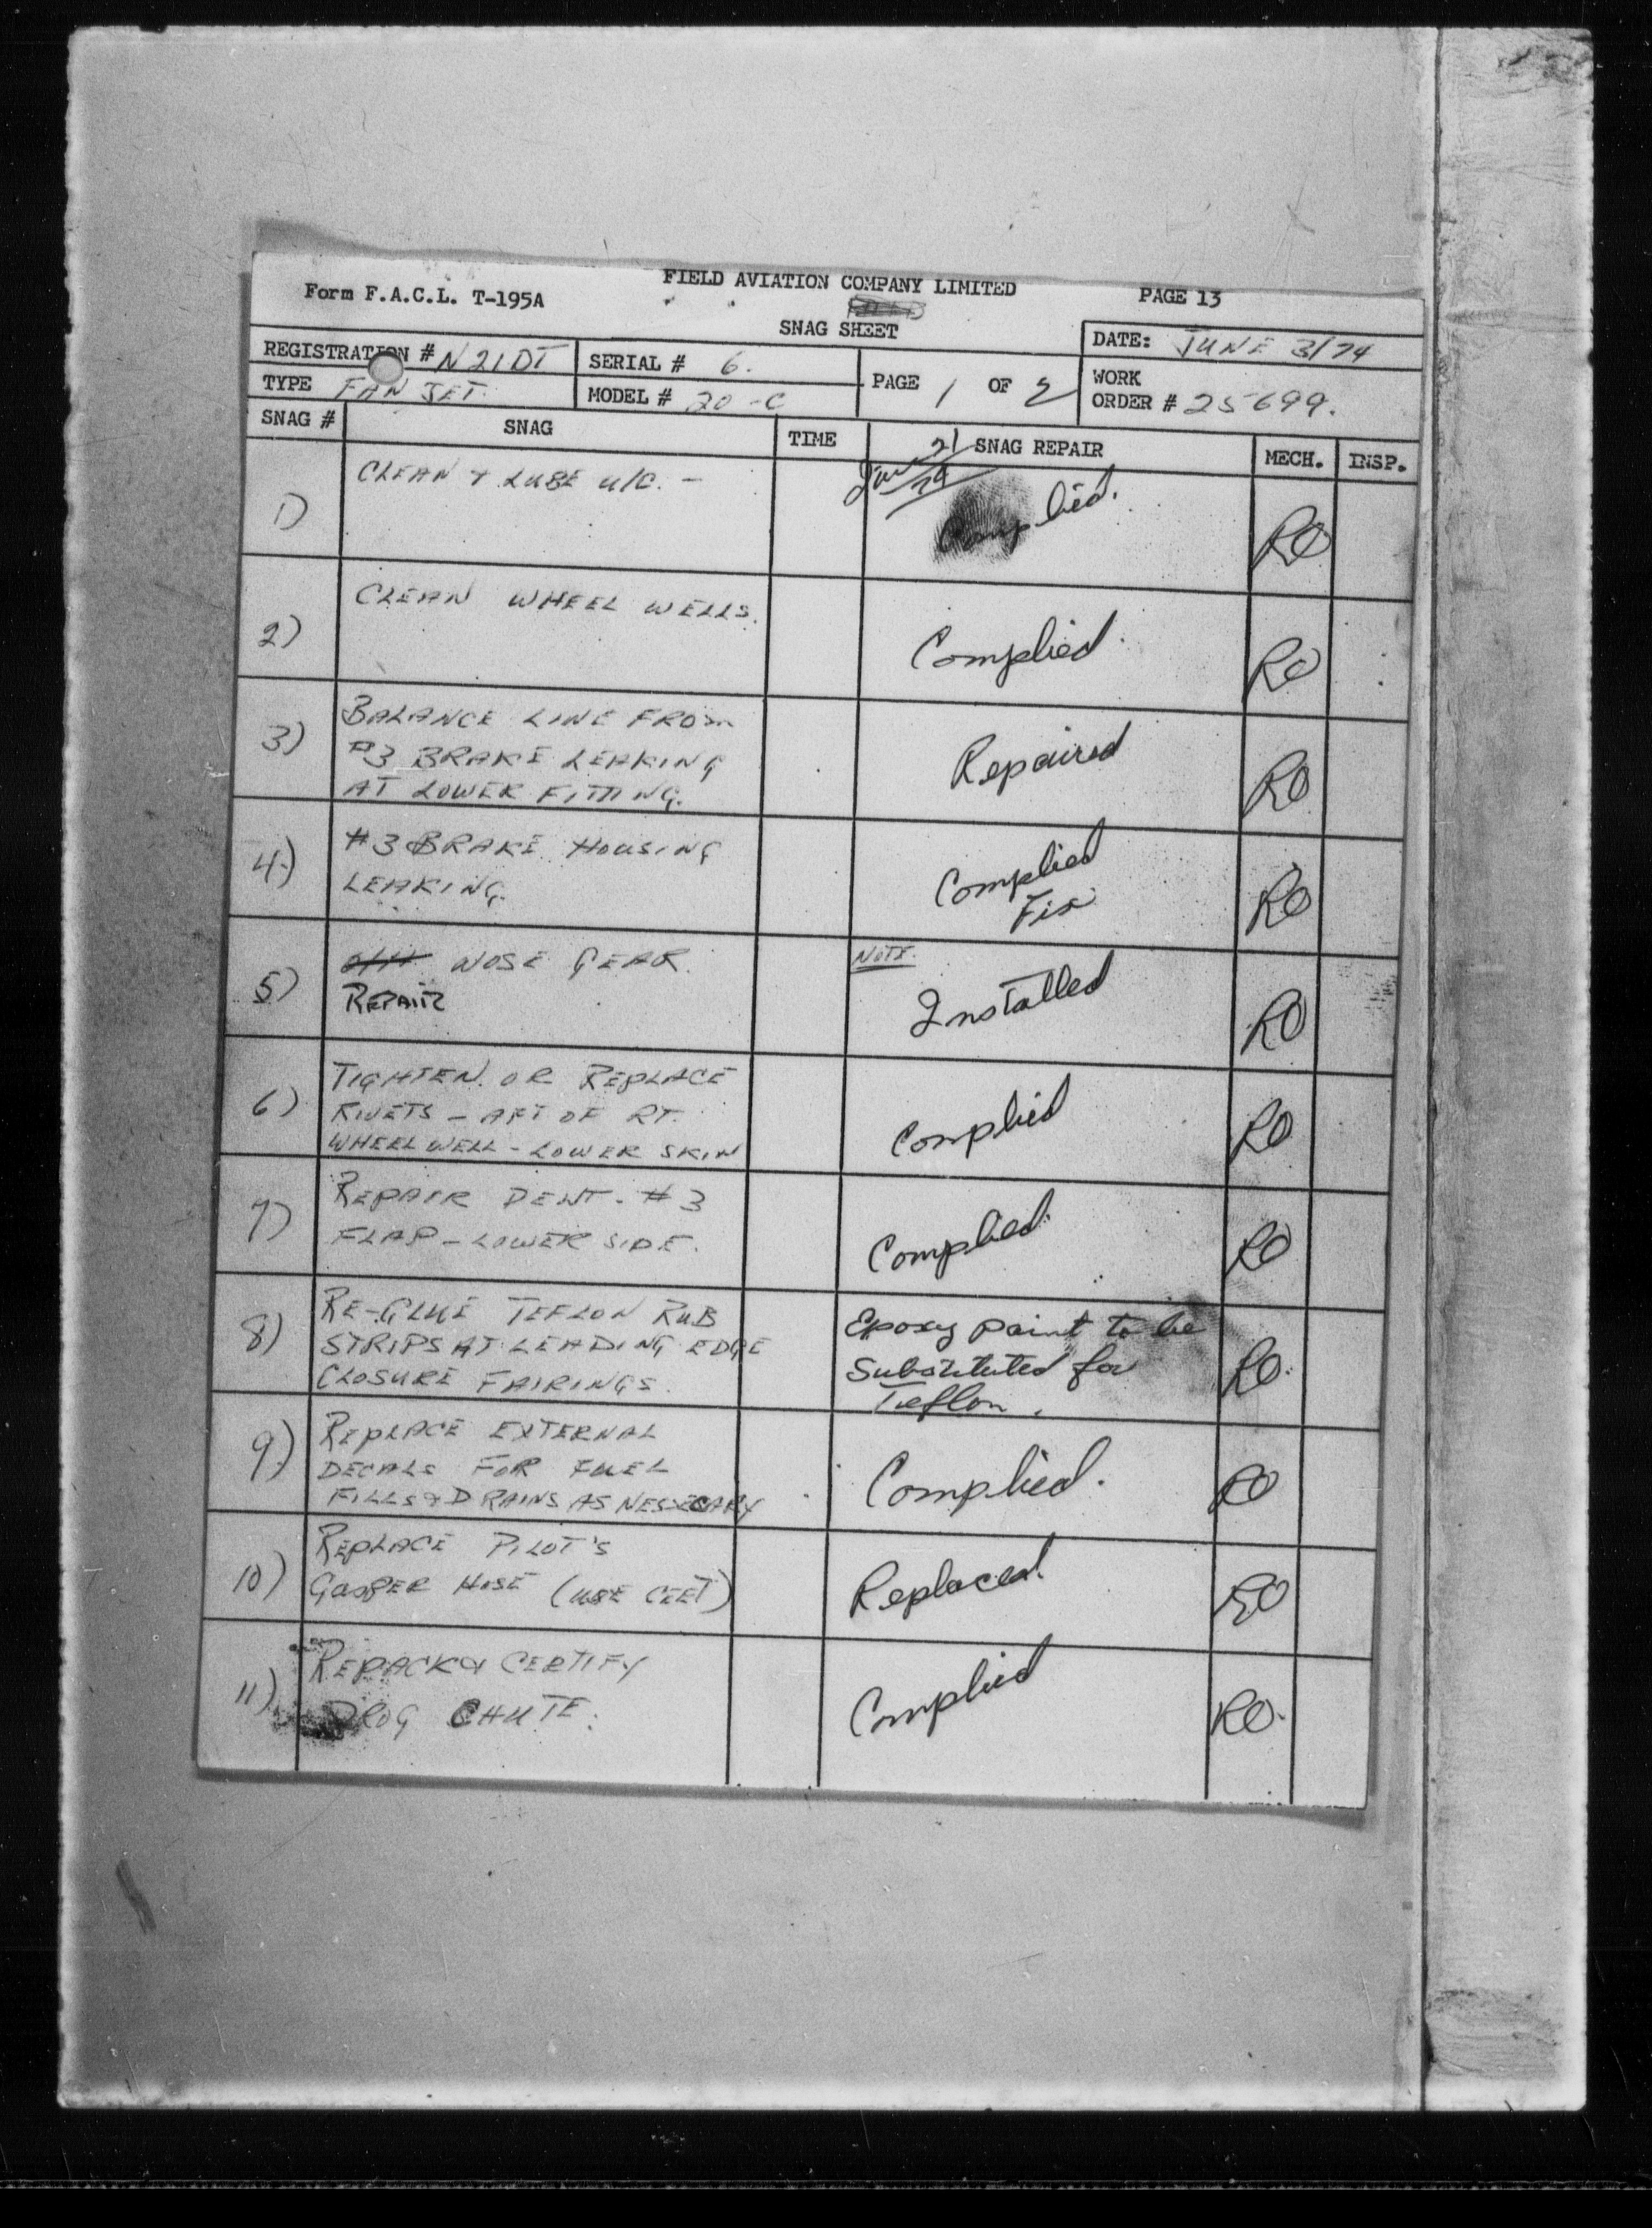 FIELD AVIATION COMPANY LIMITED
Form F.A.C.L. T-195A
PAGE 13
SNAG SHEET
REGISTRATION # N21DT
SERIAL # 6.
DATE: JUNE 3/74
TYPE FAN JET
MODEL # 20-C
PAGE 1 OF 2
WORK
ORDER # 25699.
SNAG # SNAG TIME SNAG REPAIR MECH. INSP.
21
74
1) CLEAN & LUBE U/C. - Complied. RO
2) CLEAN WHEEL WELLS. Complied. RO
3) BALANCE LINE FROM
#3 BRAKE LEAKING Repaired RO
AT LOWER FITTING.
4) #3 BRAKE HOUSING Complied
LEAKING. Fix RO
5) NOSE GEAR. NOTE.
REPAIR Installed RO
6) TIGHTEN OR REPLACE
RIVETS - AFT OF RT. Complied RO
WHEEL WELL - LOWER SKIN
7) REPAIR DENT. #3
FLAP - LOWER SIDE. Complied. RO
8) RE-GLUE TEFLON RUB Epoxy paint to be
STRIPS AT LEADING EDGE Substituted for RO.
CLOSURE FAIRINGS. Teflon.
9) REPLACE EXTERNAL
DECALS FOR FUEL Complied. RO
FILLS & DRAINS AS NESSECARY
10) REPLACE PILOT'S
GASPER HOSE (USE CEET) Replaced. RO
11) REPACK & CERTIFY
DROG CHUTE. Complied RO.